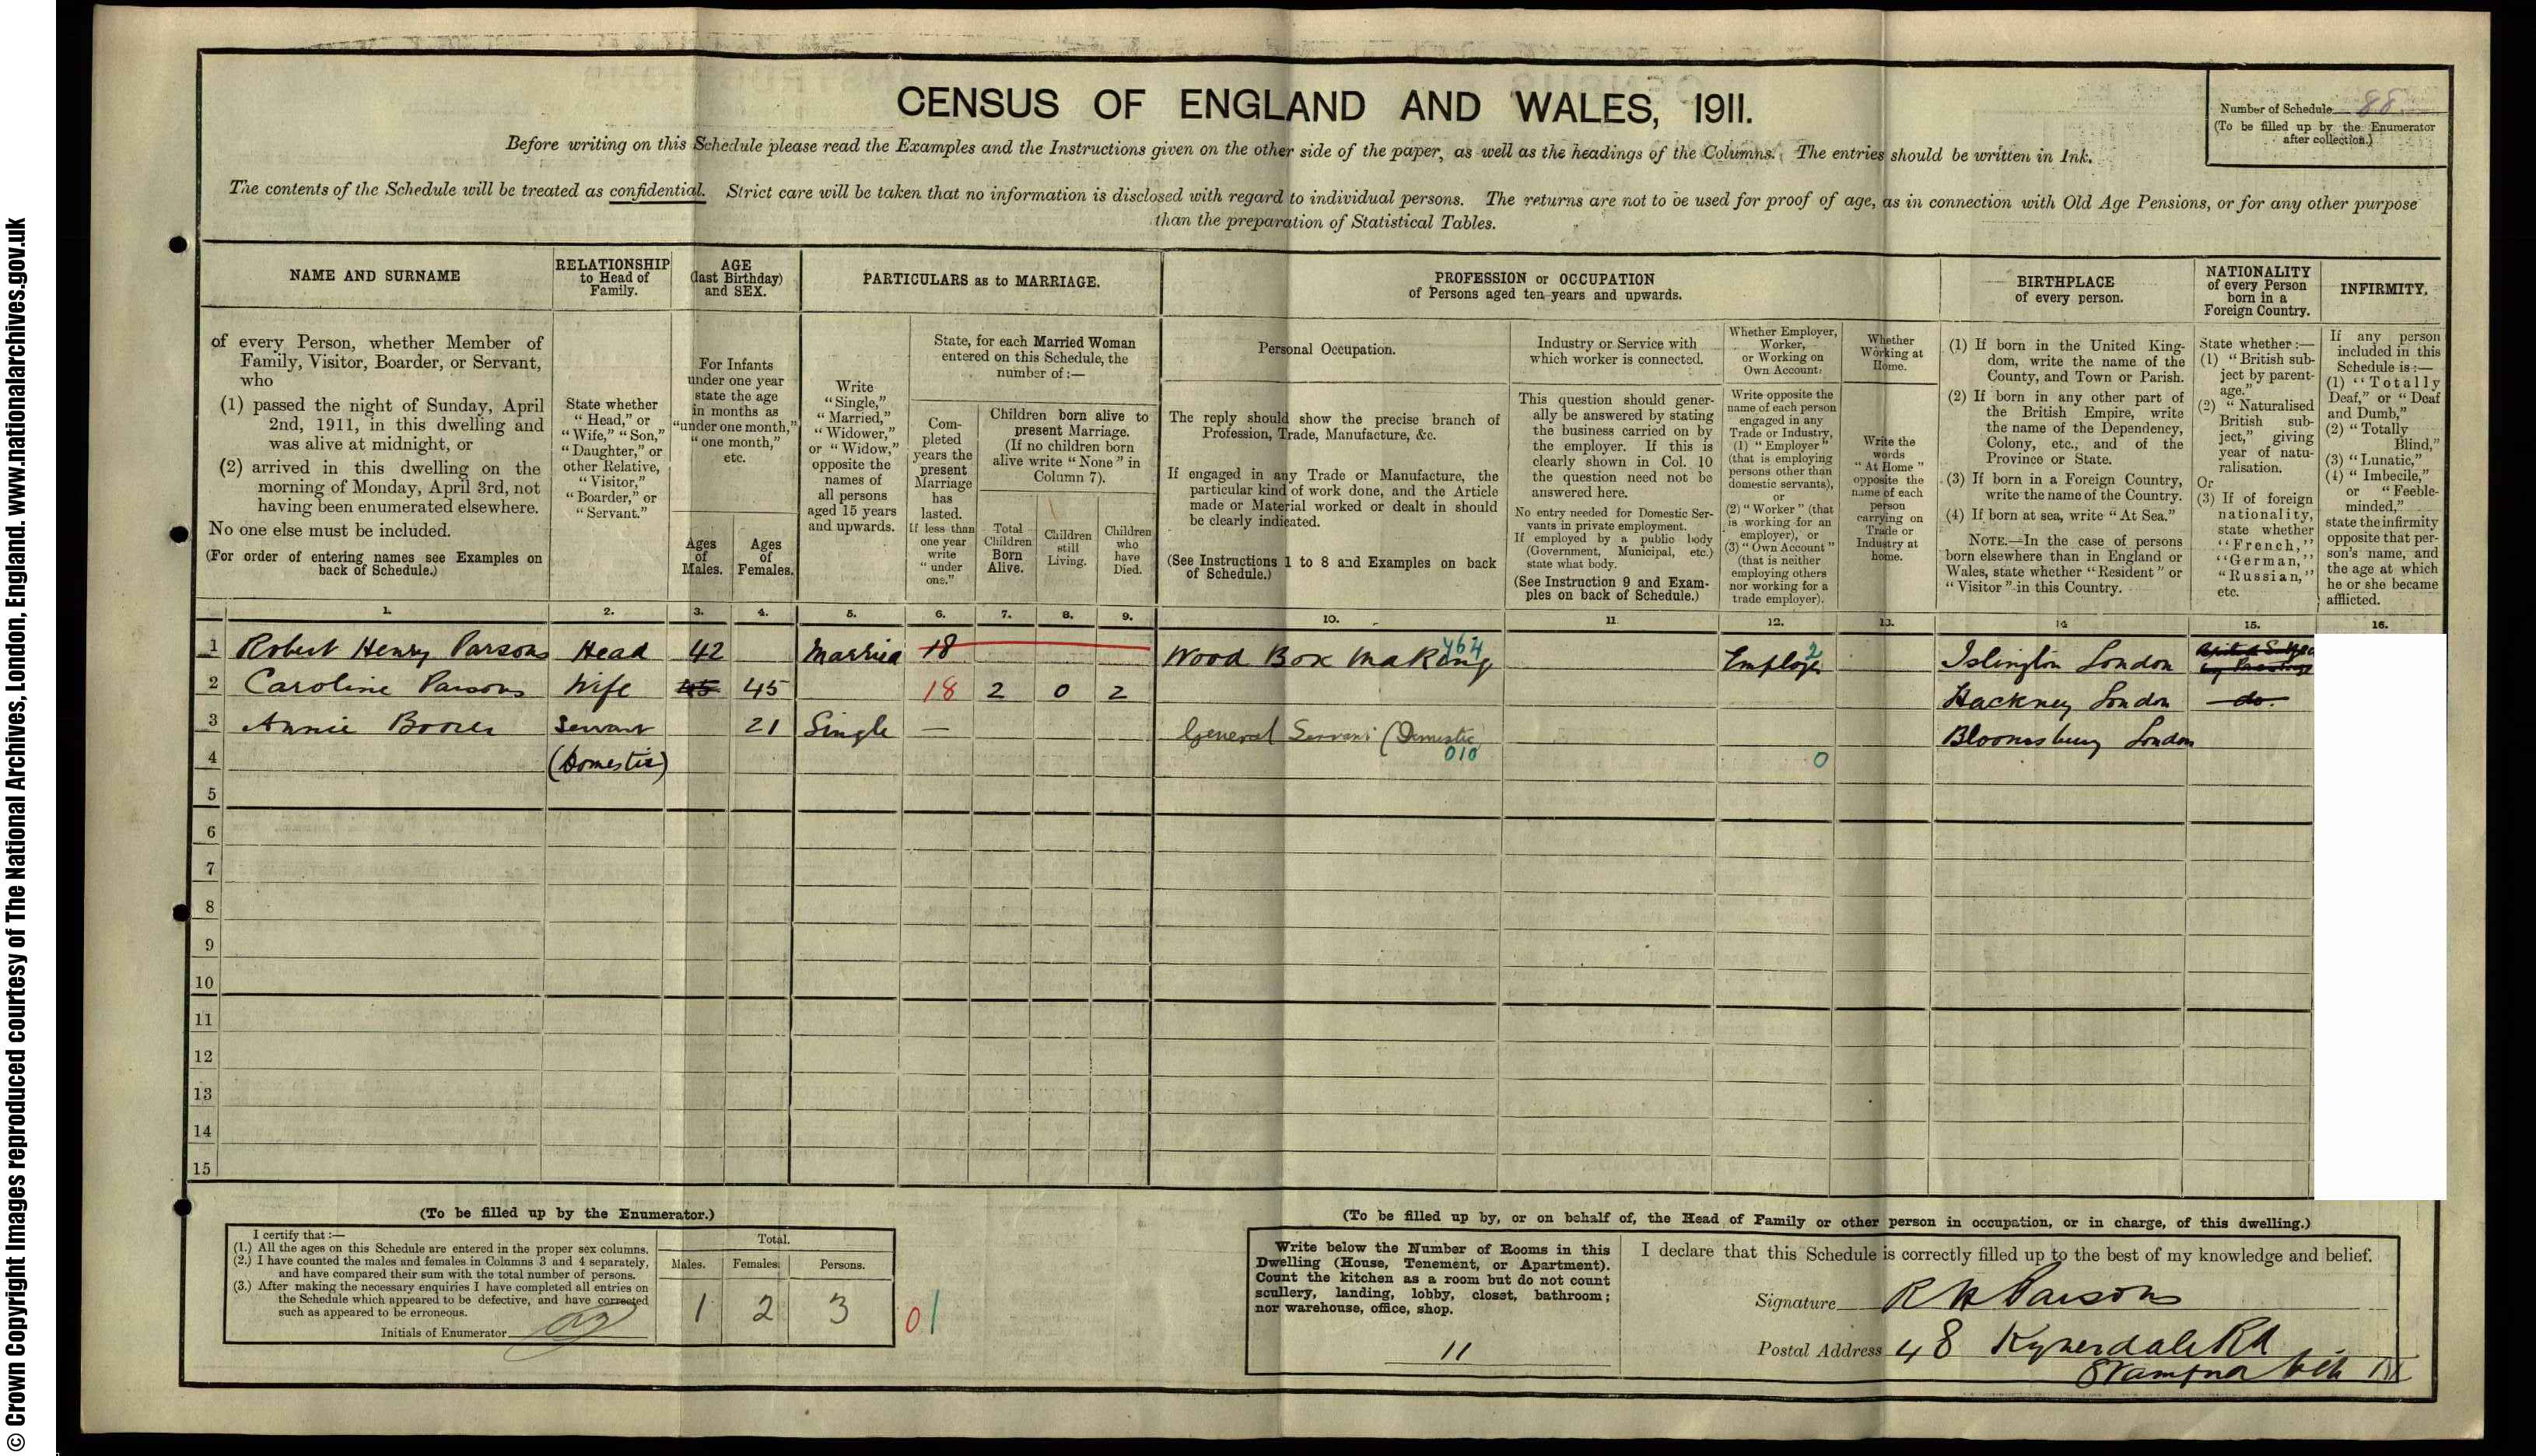 © Crown Copyright Images reproduced courtesy of The National Archives, London, England. www.nationalarchives.gov.uk
CENSUS OF ENGLAND AND WALES, 1911.
Number of Schedule 88.
(To be filled up by the Enumerator
after collection.)
Before writing on this Schedule please read the Examples and the Instructions given on the other side of the paper, as well as the headings of the Columns. The entries should be written in Ink.
The contents of the Schedule will be treated as confidential. Strict care will be taken that no information is disclosed with regard to individual persons. The returns are not to be used for proof of age, as in connection with Old Age Pensions, or for any other purpose
than the preparation of Statistical Tables.
NAME AND SURNAME
of every Person, whether Member of
Family, Visitor, Boarder, or Servant,
who
(1) passed the night of Sunday, April
2nd, 1911, in this dwelling and
was alive at midnight, or
(2) arrived in this dwelling on the
morning of Monday, April 3rd, not
having been enumerated elsewhere.
No one else must be included.
(For order of entering names see Examples on
back of Schedule.)
RELATIONSHIP
to Head of
Family.
State whether
"Head," or
"Wife," "Son,"
"Daughter," or
other Relative,
"Visitor,"
"Boarder," or
"Servant."
AGE
(last Birthday)
and SEX.
For Infants
under one year
state the age
in months as
"under one month,"
"one month,"
etc.
Ages
of
Males.
Ages
of
Females.
PARTICULARS as to MARRIAGE.
Write
"Single,"
"Married,"
"Widower,"
or "Widow,"
opposite the
names of
all persons
aged 15 years
and upwards.
State, for each Married Woman
entered on this Schedule, the
number of:—
Com-
pleted
years the
present
Marriage
has
lasted.
If less than
one year
write
"under
one."
Children born alive to
present Marriage.
(If no children born
alive write "None" in
Column 7).
Total
Children
Born
Alive.
Children
still
Living.
Children
who
have
Died.
PROFESSION or OCCUPATION
of Persons aged ten years and upwards.
Personal Occupation.
The reply should show the precise branch of
Profession, Trade, Manufacture, &c.
If engaged in any Trade or Manufacture, the
particular kind of work done, and the Article
made or Material worked or dealt in should
be clearly indicated.
(See Instructions 1 to 8 and Examples on back
of Schedule.)
Industry or Service with
which worker is connected.
This question should gener-
ally be answered by stating
the business carried on by
the employer. If this is
clearly shown in Col. 10
the question need not be
answered here.
No entry needed for Domestic Ser-
vants in private employment.
If employed by a public body
(Government, Municipal, etc.)
state what body.
(See Instruction 9 and Exam-
ples on back of Schedule.)
Whether Employer,
Worker,
or Working on
Own Account.
Write opposite the
name of each person
engaged in any
Trade or Industry,
(1) "Employer"
(that is employing
persons other than
domestic servants),
or
(2) "Worker" (that
is working for an
employer), or
(3) "Own Account"
(that is neither
employing others
nor working for a
trade employer).
Whether
Working at
Home.
Write the
words
"At Home"
opposite the
name of each
person
carrying on
Trade or
Industry at
home.
BIRTHPLACE
of every person.
(1) If born in the United King-
dom, write the name of the
County, and Town or Parish.
(2) If born in any other part of
the British Empire, write
the name of the Dependency,
Colony, etc., and of the
Province or State.
(3) If born in a Foreign Country,
write the name of the Country.
(4) If born at sea, write "At Sea."
NOTE.—In the case of persons
born elsewhere than in England or
Wales, state whether "Resident" or
"Visitor" in this Country.
NATIONALITY
of every Person
born in a
Foreign Country.
State whether:—
(1) "British sub-
ject by parent-
age."
(2) "Naturalised
British sub-
ject," giving
year of natu-
ralisation.
Or
(3) If of foreign
nationality,
state whether
"French,"
"German,"
"Russian,"
etc.
INFIRMITY.
If any person
included in this
Schedule is:—
(1) "Totally
Deaf," or "Deaf
and Dumb,"
(2) "Totally
Blind,"
(3) "Lunatic,"
(4) "Imbecile,"
or "Feeble-
minded,"
state the infirmity
opposite that per-
son's name, and
the age at which
he or she became
afflicted.
1. 2. 3. 4. 5. 6. 7. 8. 9. 10. 11. 12. 13. 14 15. 16.
1 Robert Henry Parsons Head 42 Married 18 Wood Box Making 464 Employer 2 Islington London
2 Caroline Parsons Wife 45 45 18 2 0 2 Hackney London do.
3 Annie Servant 21 Single — General Servant (Domestic Bloomsbury London
4 (Domestic) 010 0
5
6
7
8
9
10
11
12
13
14
15
(To be filled up by the Enumerator.)
I certify that:—
(1.) All the ages on this Schedule are entered in the proper sex columns.
(2.) I have counted the males and females in Columns 3 and 4 separately,
and have compared their sum with the total number of persons.
(3.) After making the necessary enquiries I have completed all entries on
the Schedule which appeared to be defective, and have corrected
such as appeared to be erroneous.
Initials of Enumerator
Total.
Males. Females. Persons.
1 2 3 01
(To be filled up by, or on behalf of, the Head of Family or other person in occupation, or in charge, of this dwelling.)
Write below the Number of Rooms in this
Dwelling (House, Tenement, or Apartment).
Count the kitchen as a room but do not count
scullery, landing, lobby, closet, bathroom;
nor warehouse, office, shop.
11
I declare that this Schedule is correctly filled up to the best of my knowledge and belief.
Signature R H Parsons
Postal Address 48 Kyverdale Rd
Stamford Hill N